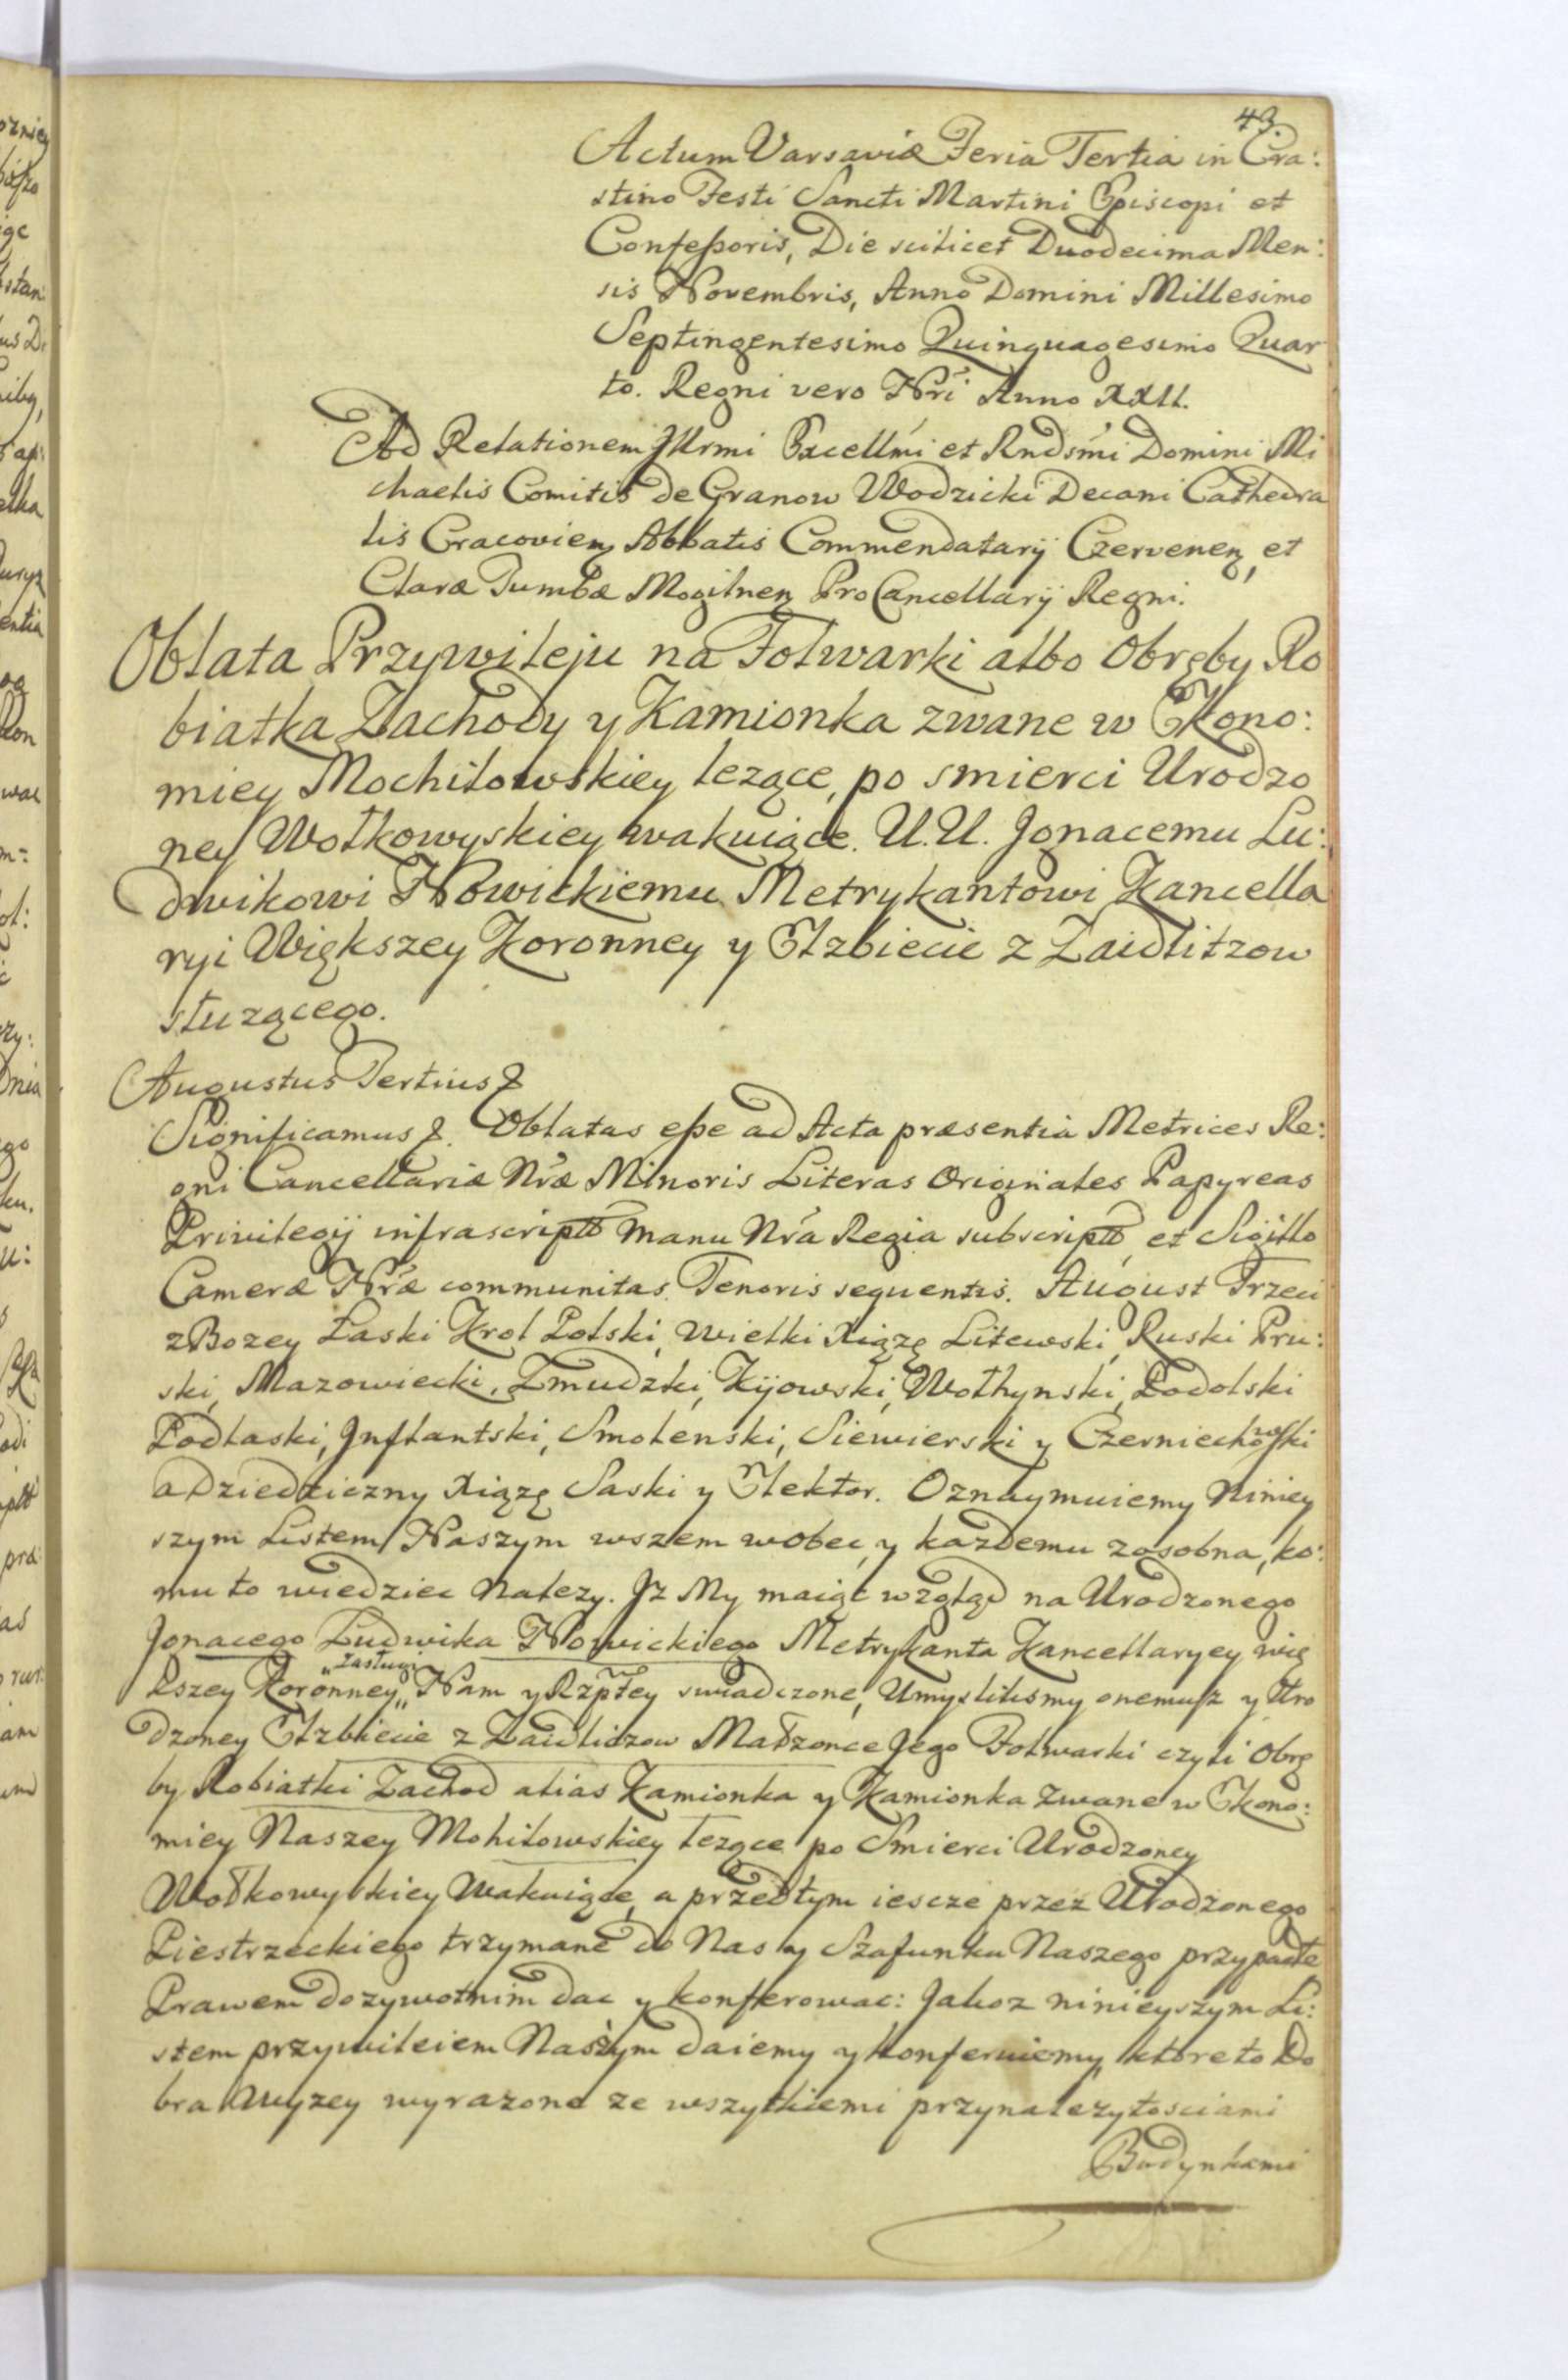 43
Actum Varsaviæ Feria Tertia in Cra:
stino Festi Sancti Martini Episcopi et
Confeßoris, Die scilicet Duodecima Men:
sis Novembris, Anno Domini Millesimo
Septingentesimo Quinquagesimo Quar
to. Regni vero Nri Anno XXII.
Ad Relationem Jllrmi Excellmi et Rndsmi Domini Mi
chaelis Comitis de Granow Wodzicki Decani Cathedra
lis Cracovien Abbatis Commendatarij Czervenen, et
Claræ Tumbæ Mogilnen ProCancellarij Regni.
Oblata Przywileju na Folwarki albo Obręby Ro
biatka Zachody y Kamionka zwane w Ekono:
miey Mochilowskiey lezące, po smierci Urodzo
ney Wołkowyskiey wakuiące. U.U. Jgnacemu Lu:
dwikowi Nowickiemu Metrykantowi Kancella
ryi Większey Koronney y Elzbiecie z Zaidlitzow
służącego.
Augustus Tertius &
Significamus &. Oblatas eße ad Acta præsentia Metrices Re:
gni Cancellariæ Nræ Minoris Literas Originales Papyreas
Privilegij infrascripti manu Nra Regia subscriptas et Sigillo
Cameræ Nræ communitas Tenoris sequentis. August Trzeci
z Bozey Łaski Krol Polski, Wielki Xiązę Litewski, Ruski Pru:
ski, Mazowiecki, Zmudzki, Kijowski, Wołhynski, Podolski
Podlaski, Jnflantski, Smolenski, Siewierski y Czerniechowski
a Dziedziczny Xiązę Saski y Elektor. Oznaymuiemy Niniey
szym Listem Naszym wszem wobec, y kazdemu zosobna, ko:
mu to wiedziec Nalezy. Jz My maiąc wzgląd na Urodzonego
Jgnacego Ludwika Nowickiego Metrykanta Kancellaryey wię
kszey Koronney „zasługi„ Nam y Rzpłtey swiadczone, Umyslilismy onemusz y Uro
dzoney Elzbiecie z Zaidliczow Małzonce Jego Folwarki czyli Obrę
by Robiatki Zachod alias Kamionka y Kamionka Zwane w Ekono:
miey Naszey Mohilowskiey lezące po Smierci Urodzoney
Wołkowyskiey Wakuiące, a przedtym iescze przez Urodzonego
Piestrzeckiego trzymane do Nas y Szafunku Naszego przypadłe
Prawem dozywotnim dac y konferowac: Jakoz ninieyszym Li:
stem przywileiem Naszym daiemy y konferuiemy, ktore to Do
bra Wyzey wyrazone ze wszytkiemi przynalezytosciami
Budynkami